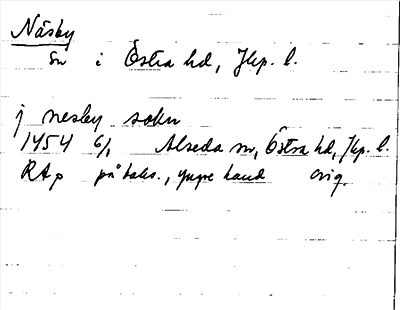 Näsby
sn i Östra hd, Jkp. l.
j nesby sokn
1454 6/1 Alseda sn, Östra hd, Jkp. l.
RAp på baks., yngre hand orig.